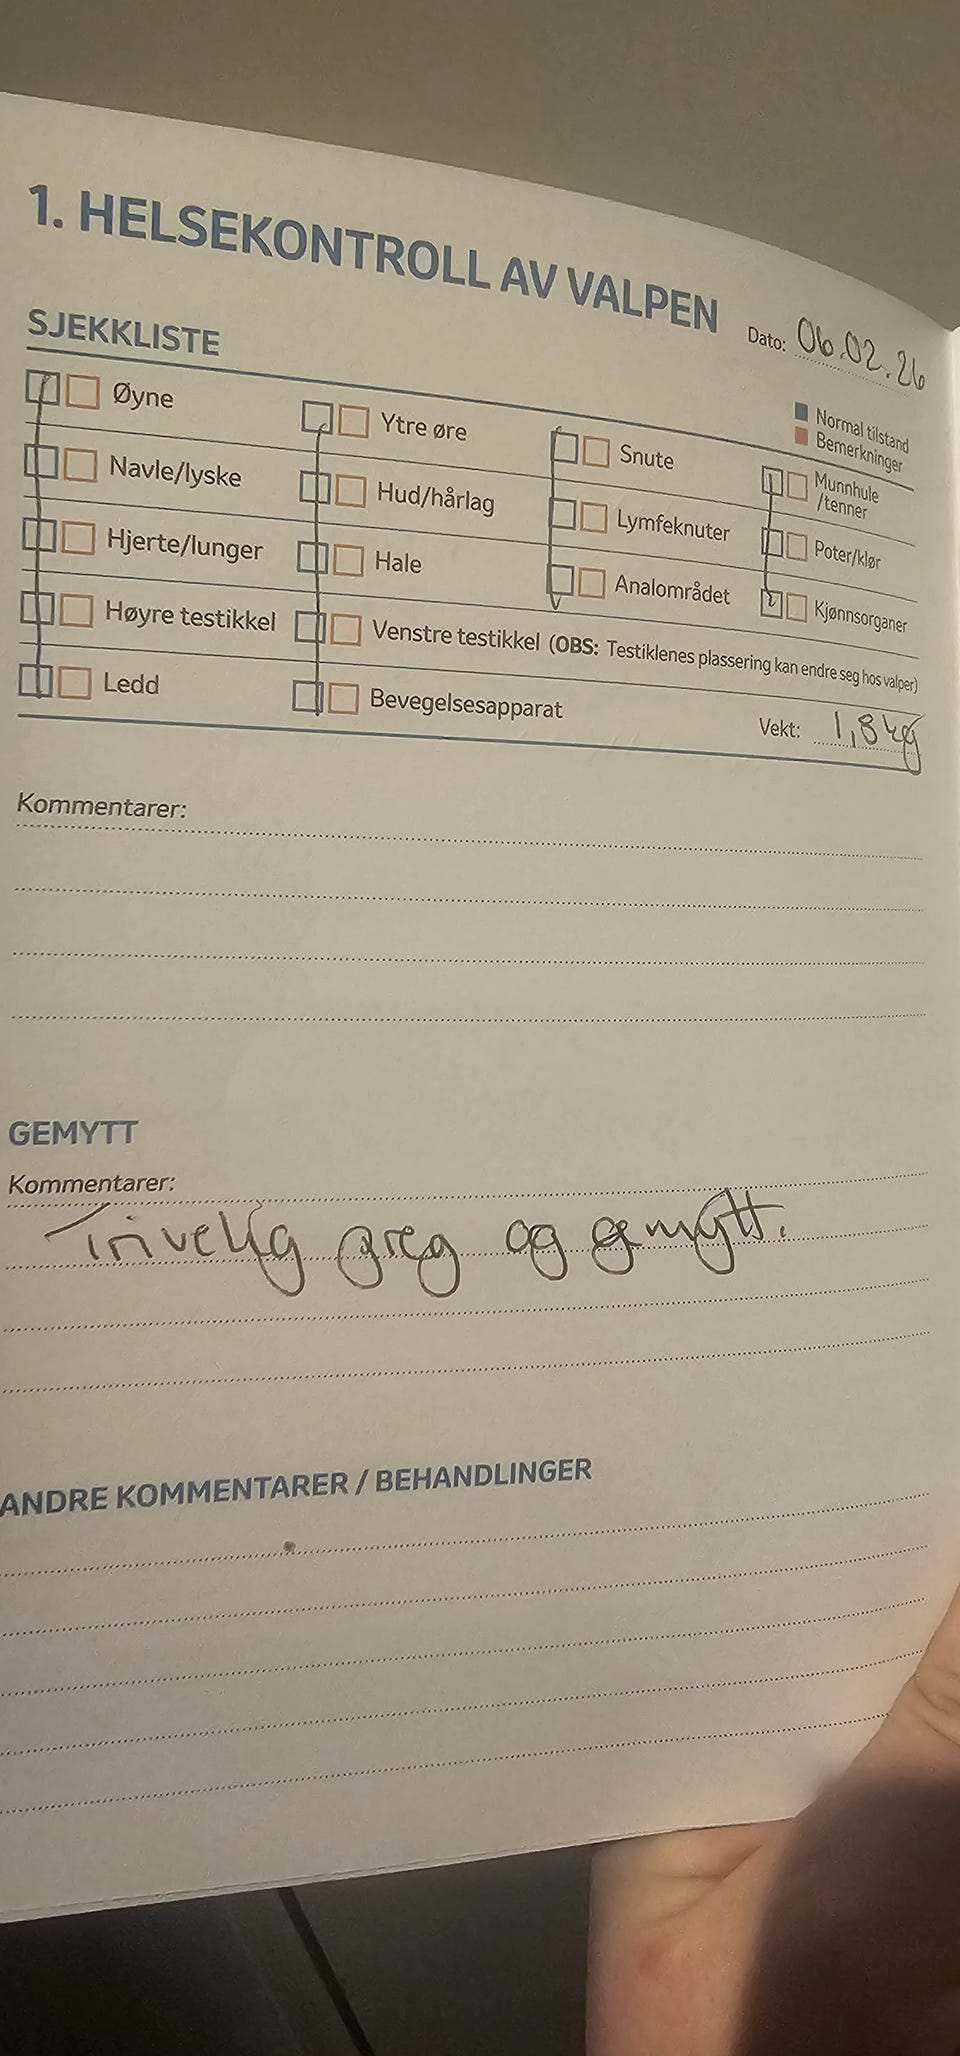 1. HELSEKONTROLL AV VALPEN
Dato: 06.02.26
SJEKKLISTE
Normal tilstand
Bemerkninger
Øyne Ytre øre Snute Munnhule /tenner
Navle/lyske Hud/hårlag Lymfeknuter Poter/klør
Hjerte/lunger Hale Analområdet Kjønnsorganer
Høyre testikkel Venstre testikkel (OBS: Testiklenes plassering kan endre seg hos valper)
Ledd Bevegelsesapparat Vekt: 1,8 kg
Kommentarer:
GEMYTT
Kommentarer:
Trivelig preg og gemytt.
ANDRE KOMMENTARER / BEHANDLINGER